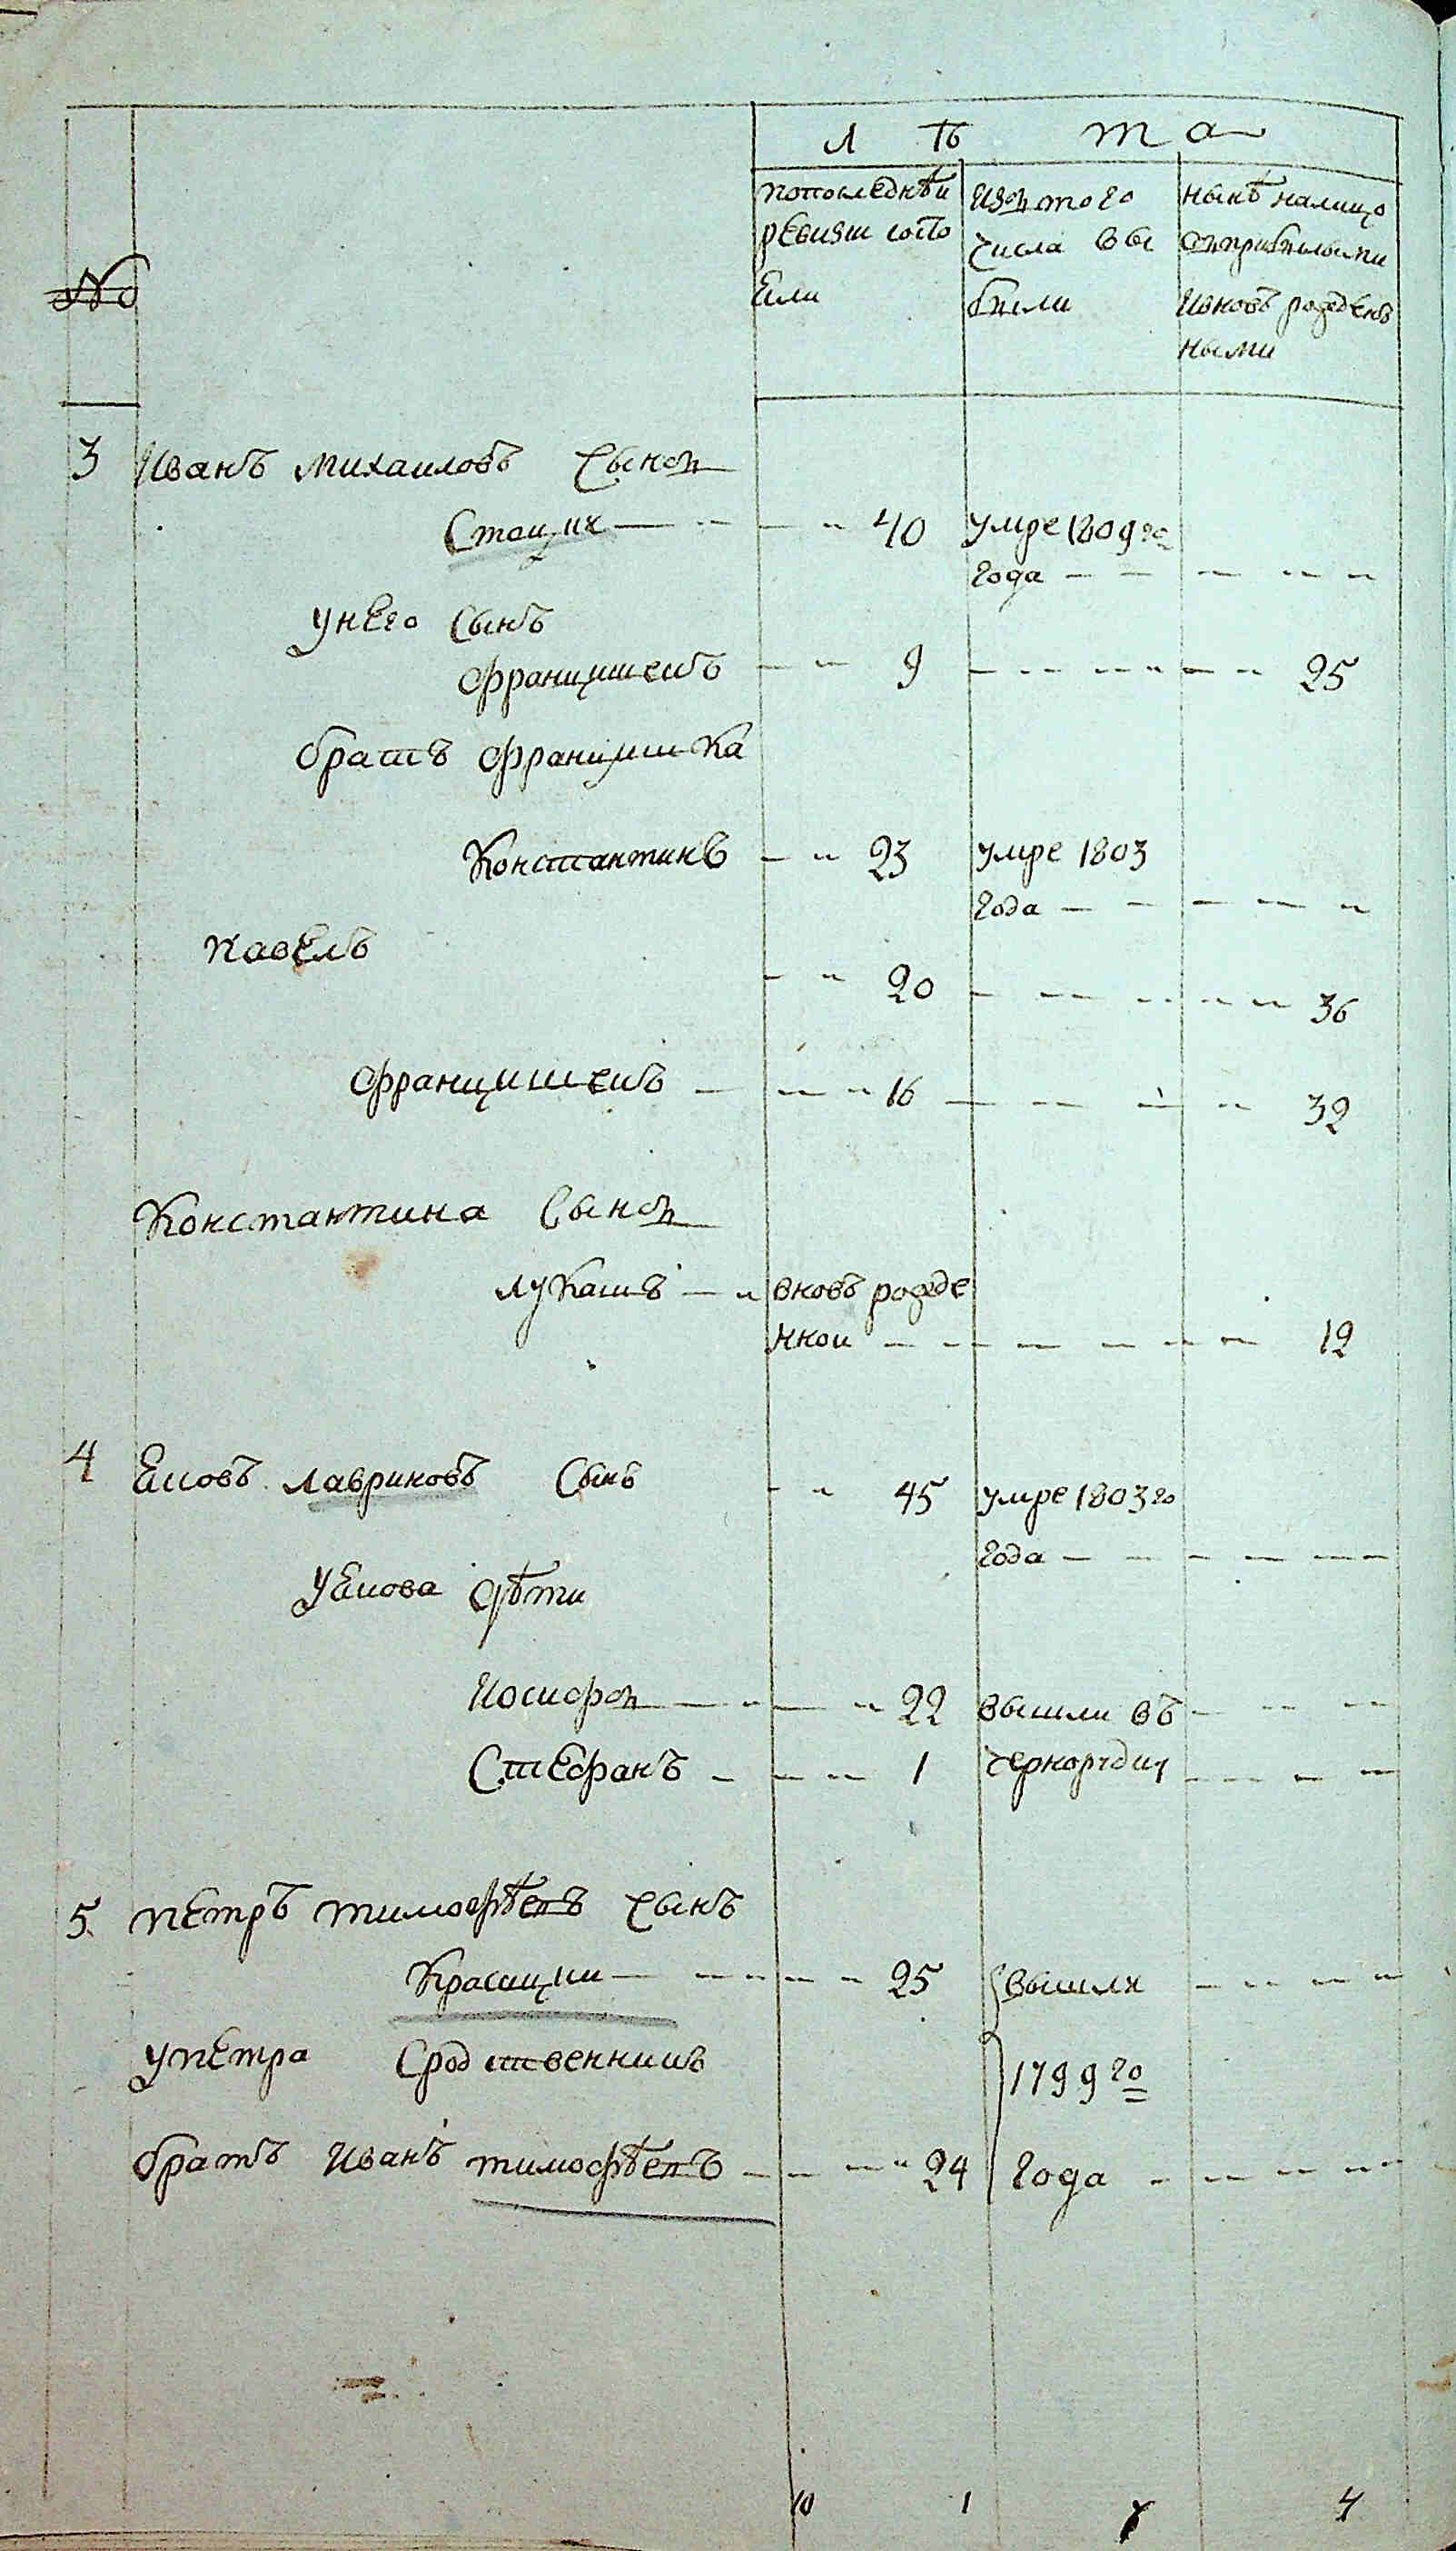 Лѣта
№
попоследнѣи ревизи состо ѣли
изъ того числа вы были
нынѣ налицо съ прибылыми и вновь рожден ными
3 Иванъ Михаиловъ сынъ
Стащик — 40 умре 1809го
года
у него сынъ
Францишекъ 9 25
братъ Францишка
Константинъ 23 умре 1803
года
Павелъ
20 36
Францишекъ — 16 32
Константина сынъ
Лукашъ — вновь рожде
нной 12
4 Яковъ Лавриновъ сынъ 45 умре 1803го
года
у Якова дѣти
Иосифъ — 22 вышли въ
Стефанъ — 1
5. Петръ Тимофѣевъ сынъ
25 вышли
у Петра сродственникъ
1799го
братъ Иванъ Тимофѣевъ — 24 года
10 1 7 4